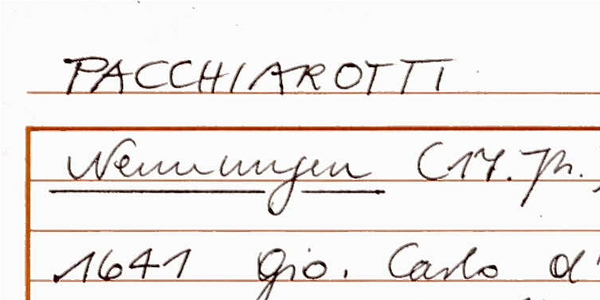 PACCHIAROTTI
Nennungen (17. Jh.)
1641 Gio. Carlo d'